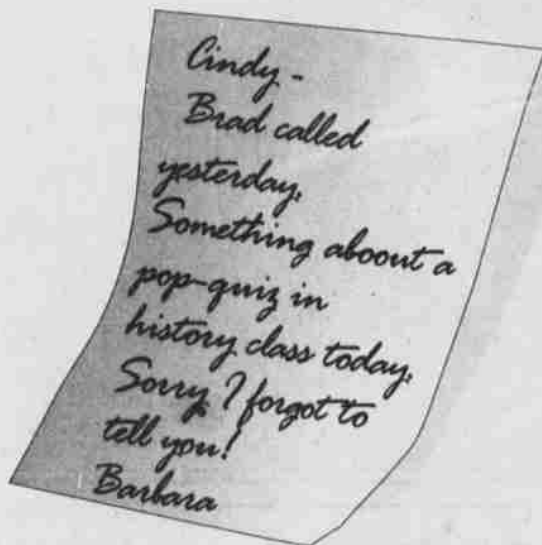 Cindy -
Brad called
yesterday.
Something aboout a
pop-quiz in
history class today.
Sorry I forgot to
tell you!
Barbara